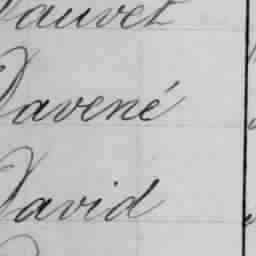 Dauvet
Davené
David